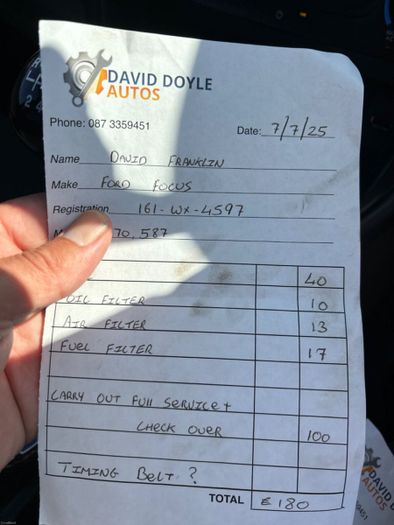 DAVID DOYLE
AUTOS
Phone: 087 3359451
Date: 7/7/25
Name DAVID FRANKLIN
Make FORD FOCUS
Registration 161-WX-4597
70,587
40
OIL FILTER 10
AIR FILTER 13
FUEL FILTER 17
CARRY OUT FULL SERVICE +
CHECK OVER 100
TIMING BELT ?
TOTAL €180
DAVID
AUTOS